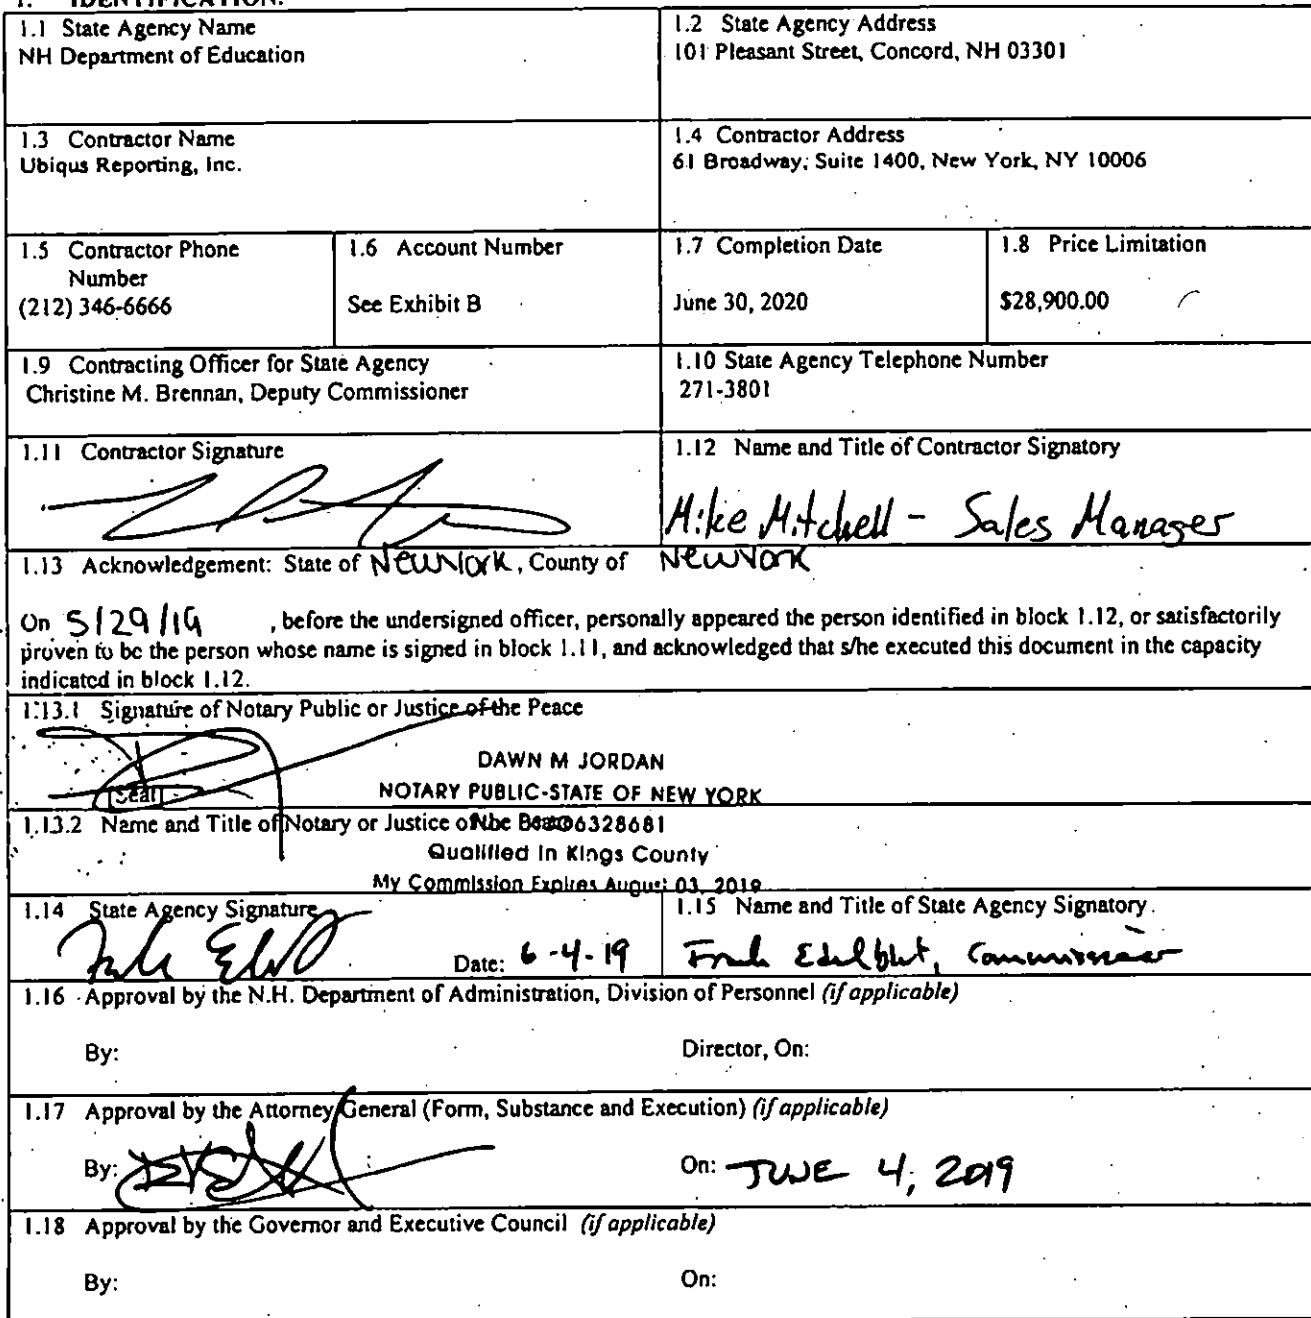 1. IDENTIFICATION.
1.1 State Agency Name
NH Department of Education
1.2 State Agency Address
101 Pleasant Street, Concord, NH 03301
1.3 Contractor Name
Ubiqus Reporting, Inc.
1.4 Contractor Address
61 Broadway, Suite 1400, New York, NY 10006
1.5 Contractor Phone
Number
(212) 346-6666
1.6 Account Number
See Exhibit B
1.7 Completion Date
June 30, 2020
1.8 Price Limitation
$28,900.00
1.9 Contracting Officer for State Agency
Christine M. Brennan, Deputy Commissioner
1.10 State Agency Telephone Number
271-3801
1.11 Contractor Signature
1.12 Name and Title of Contractor Signatory
Mike Mitchell - Sales Manager
1.13 Acknowledgement: State of New York, County of New York
On 5/29/19 , before the undersigned officer, personally appeared the person identified in block 1.12, or satisfactorily
proven to be the person whose name is signed in block 1.11, and acknowledged that s/he executed this document in the capacity
indicated in block 1.12.
1.13.1 Signature of Notary Public or Justice of the Peace
DAWN M JORDAN
[Seal] NOTARY PUBLIC-STATE OF NEW YORK
1.13.2 Name and Title of Notary or Justice of the 6328681
Qualified in Kings County
My Commission Expires August 03, 2019
1.14 State Agency Signature
Date: 6-4-19
1.15 Name and Title of State Agency Signatory
Frank Edelblut, Commissioner
1.16 Approval by the N.H. Department of Administration, Division of Personnel (if applicable)
By: Director, On:
1.17 Approval by the Attorney General (Form, Substance and Execution) (if applicable)
By: On: JUNE 4, 2019
1.18 Approval by the Governor and Executive Council (if applicable)
By: On: